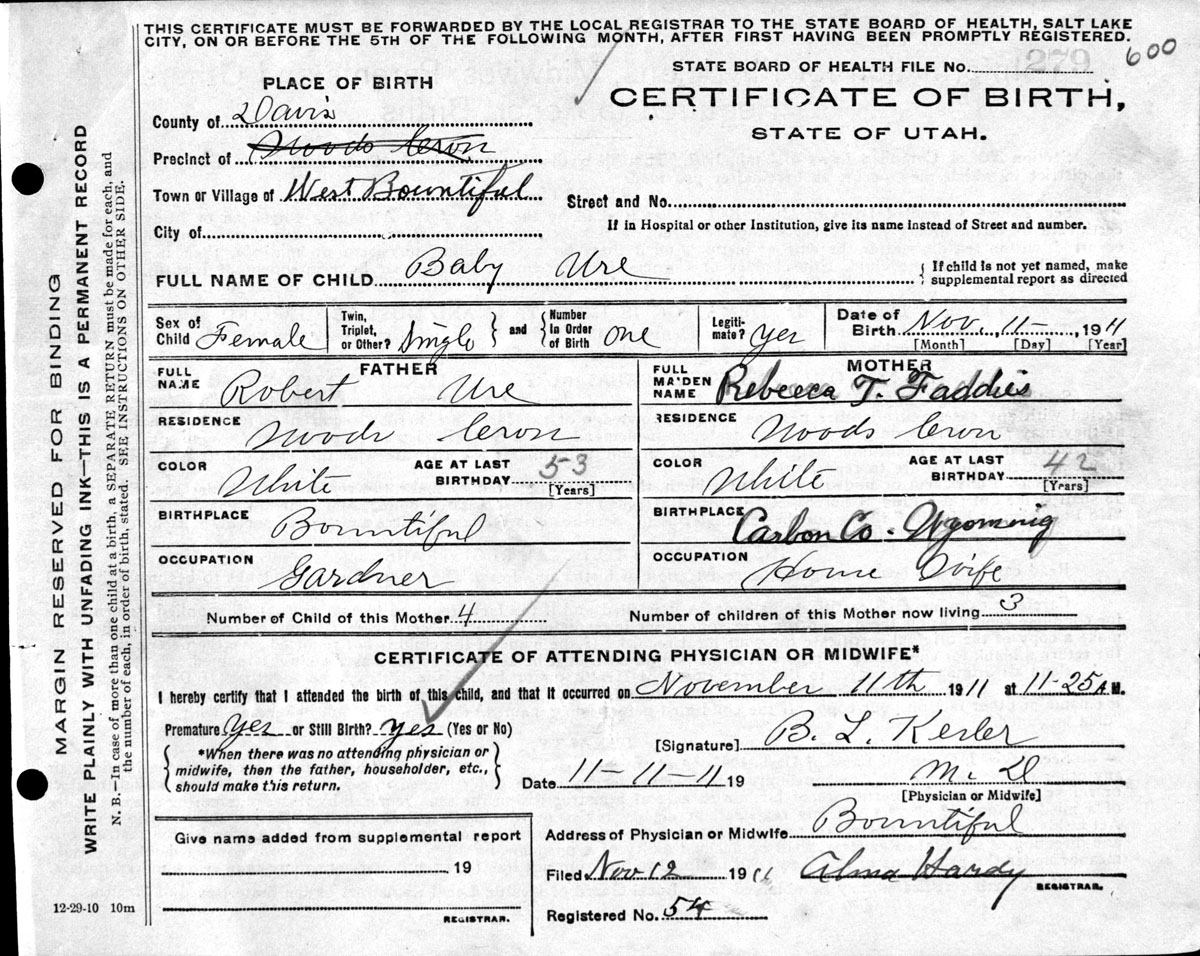 THIS CERTIFICATE MUST BE FORWARDED BY THE LOCAL REGISTRAR TO THE STATE BOARD OF HEALTH, SALT LAKE
CITY, ON OR BEFORE THE 5TH OF THE FOLLOWING MONTH, AFTER FIRST HAVING BEEN PROMPTLY REGISTERED.
600
STATE BOARD OF HEALTH FILE No. 279
CERTIFICATE OF BIRTH,
STATE OF UTAH.
PLACE OF BIRTH
County of Davis
Precinct of Woods Cross
Town or Village of West Bountiful
City of
Street and No.
If in Hospital or other Institution, give its name instead of Street and number.
FULL NAME OF CHILD Baby Ure
{ If child is not yet named, make
supplemental report as directed
Sex of Child Female
Twin, Triplet, or Other? Single
and
Number In Order of Birth one
Legitimate? yes
Date of Birth Nov 11- , 1911
[Month] [Day] [Year]
FATHER
FULL NAME Robert Ure
RESIDENCE Woods Cross
COLOR White
AGE AT LAST BIRTHDAY 53
[Years]
BIRTHPLACE Bountiful
OCCUPATION Gardner
MOTHER
FULL MAIDEN NAME Rebecca T. Faddies
RESIDENCE Woods Cross
COLOR White
AGE AT LAST BIRTHDAY 42
[Years]
BIRTHPLACE Carbon Co. Wyoming
OCCUPATION Home Wife
Number of Child of this Mother 4
Number of children of this Mother now living 3
CERTIFICATE OF ATTENDING PHYSICIAN OR MIDWIFE*
I hereby certify that I attended the birth of this child, and that it occurred on November 11th 1911 at 11-25 A M.
Premature yes or Still Birth? yes (Yes or No)
*When there was no attending physician or
midwife, then the father, householder, etc.,
should make this return.
[Signature] B. L. Kesler
Date 11-11-11 19
M. D
[Physician or Midwife]
Give name added from supplemental report
19
REGISTRAR.
Address of Physician or Midwife Bountiful
Filed Nov 12 1911 Alma Hardy
REGISTRAR.
Registered No. 54
12-29-10 10m
MARGIN RESERVED FOR BINDING
WRITE PLAINLY WITH UNFADING INK—THIS IS A PERMANENT RECORD
N. B.—In case of more than one child at a birth, a SEPARATE RETURN must be made for each, and
the number of each, in order of birth, stated. SEE INSTRUCTIONS ON OTHER SIDE.